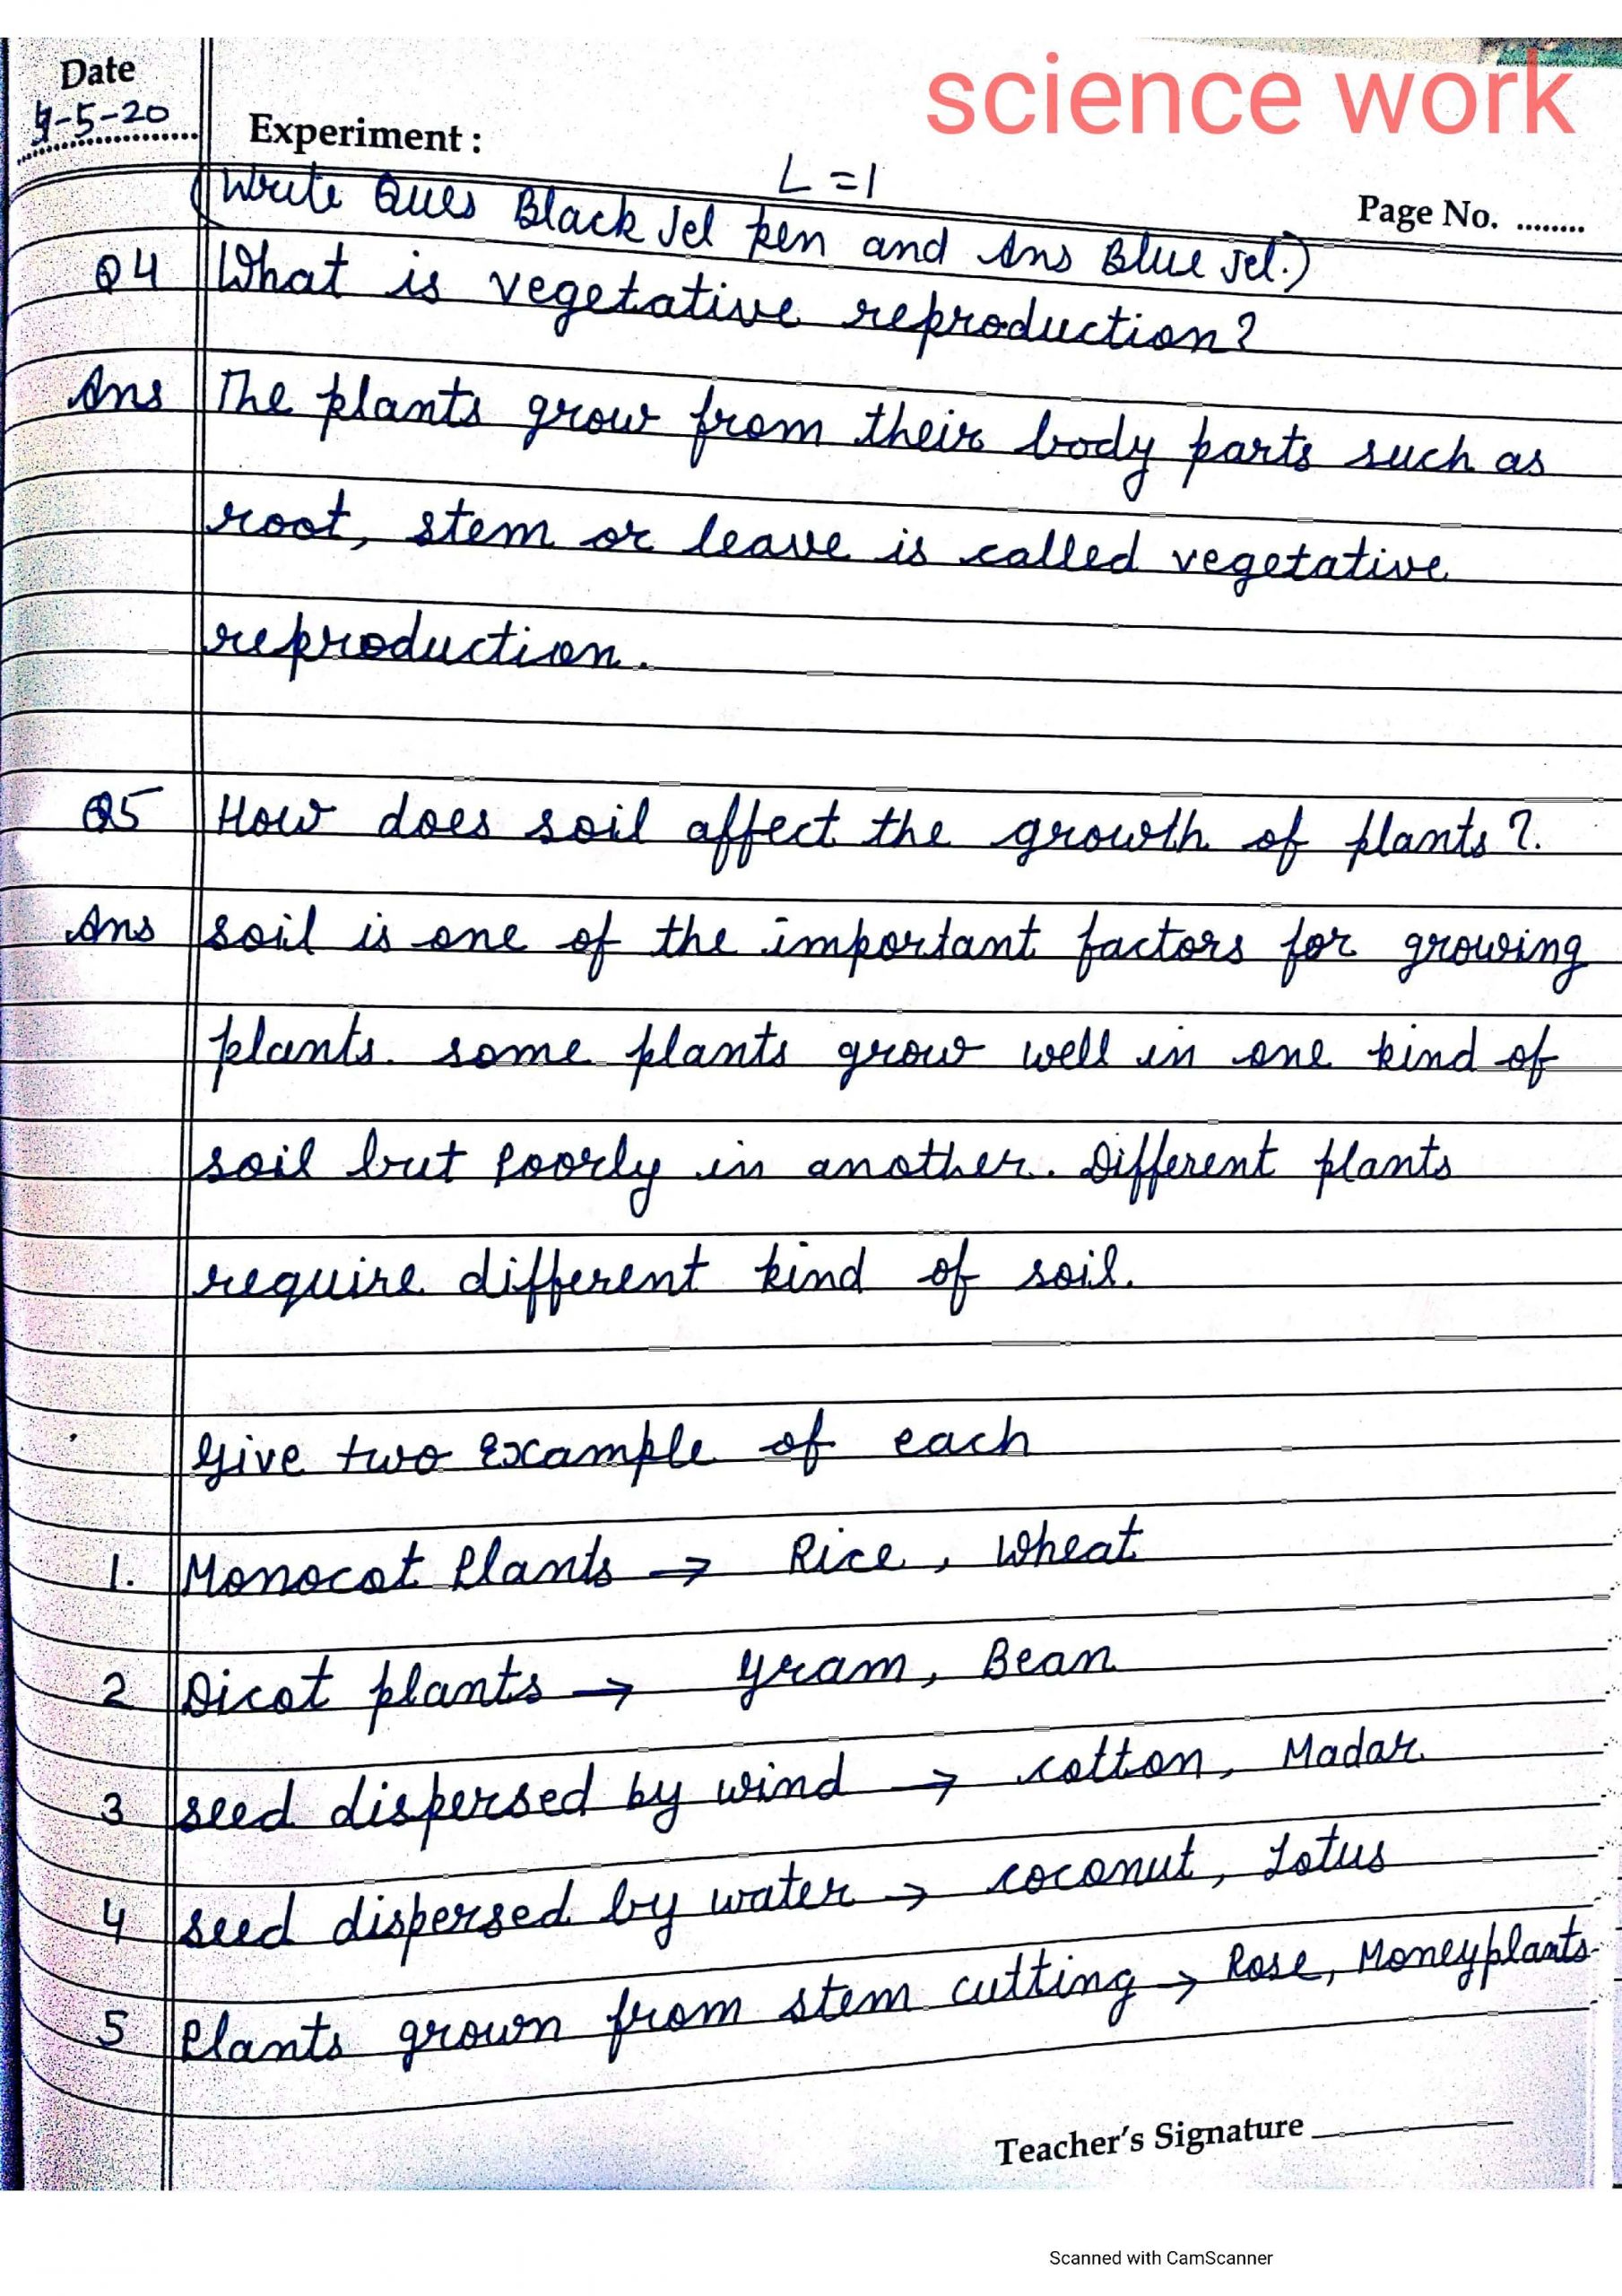 science work
Date
4-5-20
Experiment :
L=1
Page No. ........
(Write Ques Black Jel pen and Ans Blue Jel.)
Q4 What is vegetative reproduction?
Ans The plants grow from their body parts such as
root, stem or leave is called vegetative
reproduction.
Q5 How does soil affect the growth of plants?
Ans soil is one of the important factors for growing
plants. some plants grow well in one kind of
soil but poorly in another. Different plants
require different kind of soil.
Give two Example of each
1. Monocot Plants → Rice, Wheat
2 Dicot plants → Gram, Bean
3 seed dispersed by wind → cotton, Madar
4 seed dispersed by water → coconut, Lotus
5 Plants grown from stem cutting → Rose, Moneyplants
Teacher's Signature
Scanned with CamScanner